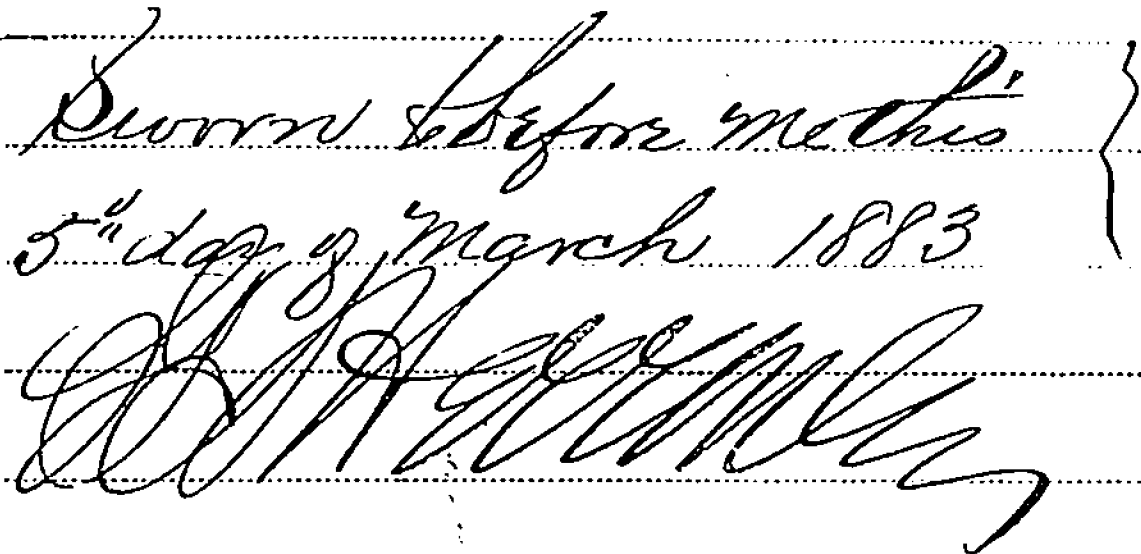 Sworn to before me this
5" day of March 1883